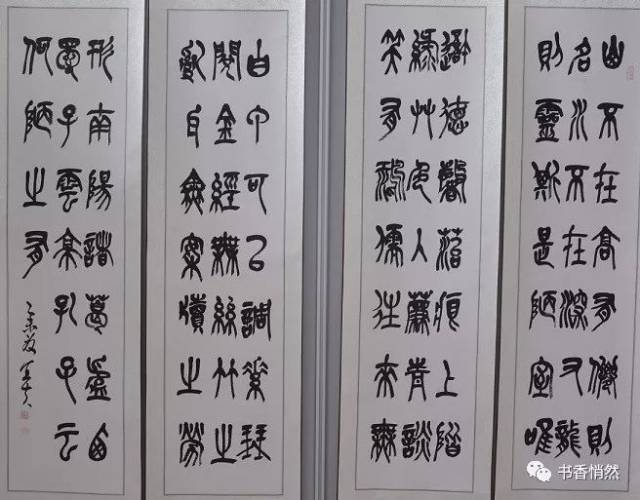 山不在高有僊則
名水不在深又龍
則靈斯是陋室唯
吾德馨苔痕上階
綠艸色入簾青談
笑有鴻儒往來無
白丁可㠯調素琴
閱金經無絲竹之
亂耳無案牘之勞
形南陽諸葛廬西
蜀子雲亭孔子云
何陋之有
书香悄然